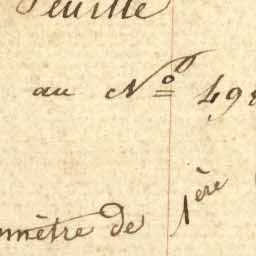 Feuille
au Nº 498
mètre de 1ère